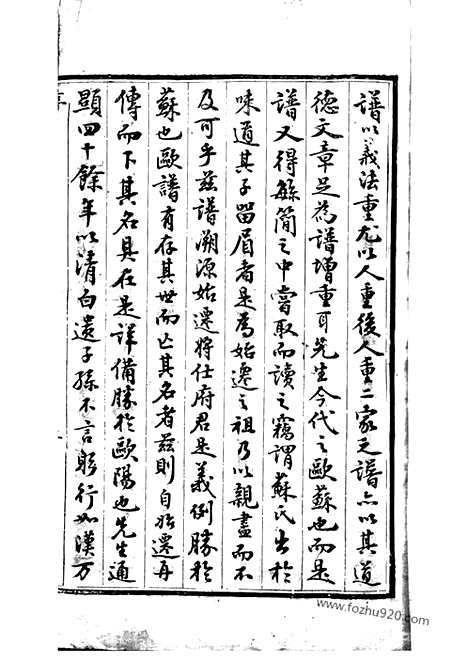 譜以義法重尤以人重後人重二家之譜亦以其道
德文章足為譜增重耳先生今代之歐蘇也而是
譜又得繇簡之中嘗取而讀之竊謂蘇氏出於
味道其子留眉者是為始遷之祖乃以親盡而不
及可乎茲譜溯源始遷將仕府君是義例勝於
蘇也歐譜有存其世而亡其名者茲則自始遷再
傳而下其名具在是詳備勝於歐陽也先生通
顯四十餘年以清白遺子孫不言躬行如漢万
序
www.fozhu920.com